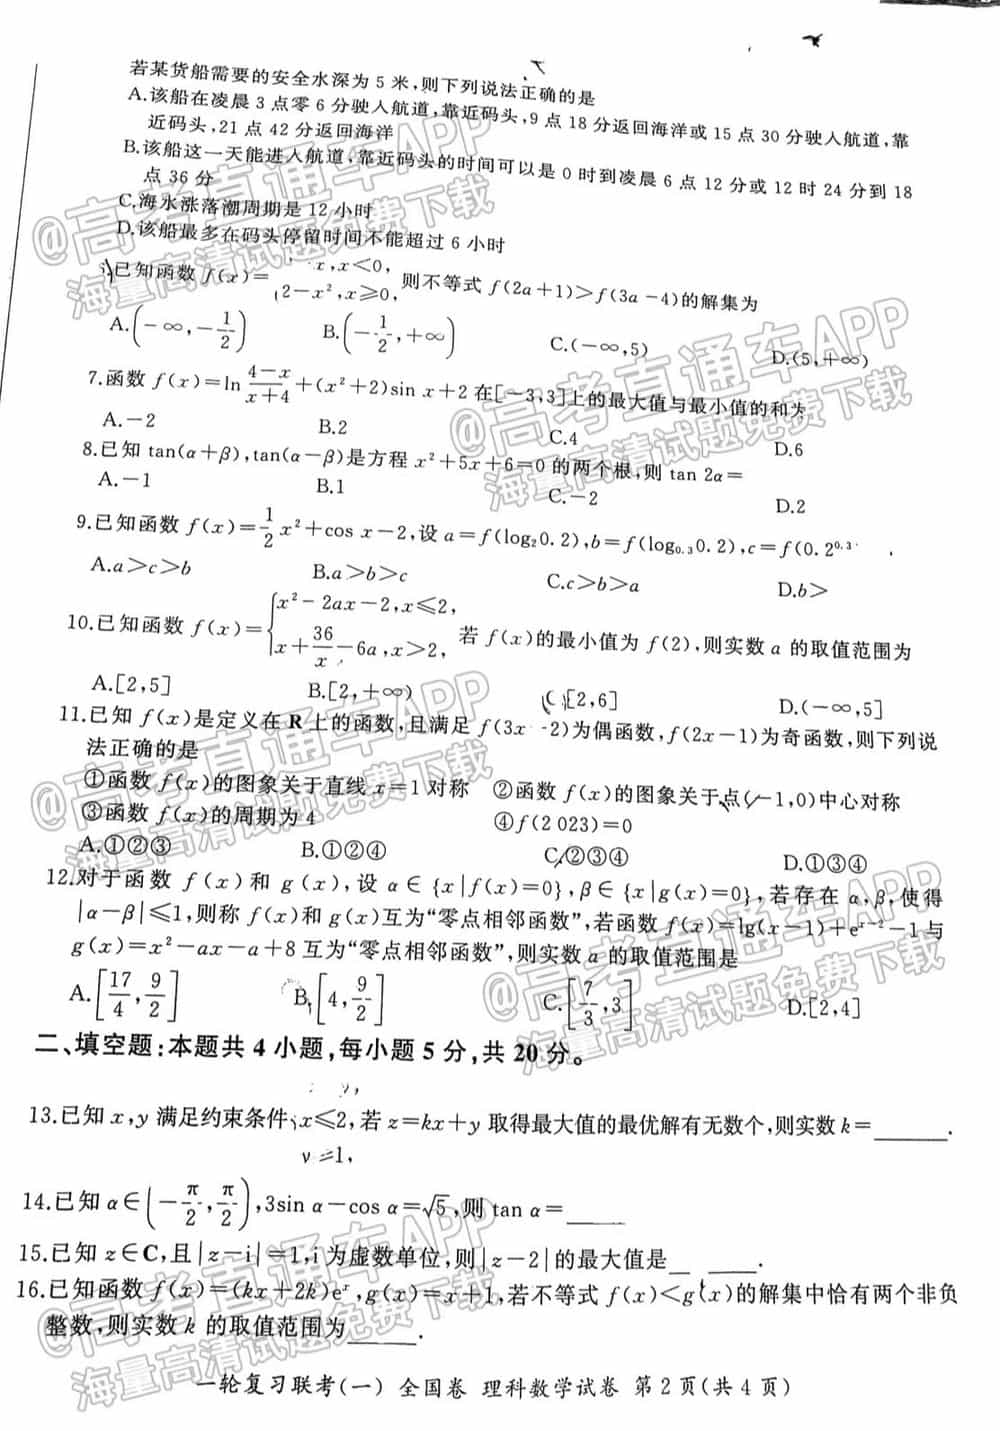 若某货船需要的安全水深为 5 米,则下列说法正确的是
A.该船在凌晨 3 点零 6 分驶人航道,靠近码头,9 点 18 分返回海洋或 15 点 30 分驶人航道,靠
近码头,21 点 42 分返回海洋
B.该船这一天能进人航道,靠近码头的时间可以是 0 时到凌晨 6 点 12 分或 12 时 24 分到 18
点 36 分
C.海水涨落潮周期是 12 小时
D.该船最多在码头停留时间不能超过 6 小时
已知函数 f(x)= x,x<0,
2-x²,x≥0, 则不等式 f(2a+1)>f(3a-4)的解集为
A.(-∞,-1/2) B.(-1/2,+∞) C.(-∞,5) D.(5,+∞)
7.函数 f(x)=ln (4-x)/(x+4) +(x²+2)sin x+2 在[-3,3]上的最大值与最小值的和为
A.-2 B.2 C.4 D.6
8.已知 tan(α+β),tan(α-β)是方程 x²+5x+6=0 的两个根,则 tan 2α=
A.-1 B.1 C.-2 D.2
9.已知函数 f(x)=1/2 x²+cos x-2,设 a=f(log₂0.2),b=f(log₀.₃0.2),c=f(0.2^0.3
A.a>c>b B.a>b>c C.c>b>a D.b>
10.已知函数 f(x)={x²-2ax-2,x≤2,
x+36/x-6a,x>2, 若 f(x)的最小值为 f(2),则实数 a 的取值范围为
A.[2,5] B.[2,+∞) C.[2,6] D.(-∞,5]
11.已知 f(x)是定义在 R 上的函数,且满足 f(3x-2)为偶函数,f(2x-1)为奇函数,则下列说
法正确的是
①函数 f(x)的图象关于直线 x=1 对称 ②函数 f(x)的图象关于点(-1,0)中心对称
③函数 f(x)的周期为 4 ④f(2 023)=0
A.①②③ B.①②④ C.②③④ D.①③④
12.对于函数 f(x)和 g(x),设 α∈{x|f(x)=0},β∈{x|g(x)=0},若存在 α,β,使得
|α-β|≤1,则称 f(x)和 g(x)互为“零点相邻函数”,若函数 f(x)=lg(x-1)+eˣ⁻²-1 与
g(x)=x²-ax-a+8 互为“零点相邻函数”,则实数 a 的取值范围是
A.[17/4,9/2] B.[4,9/2] C.[7/3,3] D.[2,4]
二、填空题:本题共 4 小题,每小题 5 分,共 20 分。
13.已知 x,y 满足约束条件 x≤2,若 z=kx+y 取得最大值的最优解有无数个,则实数 k=______.
14.已知 α∈(-π/2,π/2),3sin α-cos α=√5,则 tan α=____
15.已知 z∈C,且|z-i|=1,i 为虚数单位,则|z-2|的最大值是____.
16.已知函数 f(x)=(kx+2k)eˣ,g(x)=x+1,若不等式 f(x)<g(x)的解集中恰有两个非负
整数,则实数 k 的取值范围为_____.
一轮复习联考(一) 全国卷 理科数学试卷 第 2 页(共 4 页)
@高考直通车APP
海量高清试题免费下载
@高考直通车APP
海量高清试题免费下载
@高考直通车APP
海量高清试题免费下载
@高考直通车APP
海量高清试题免费下载
@高考直通车APP
海量高清试题免费下载